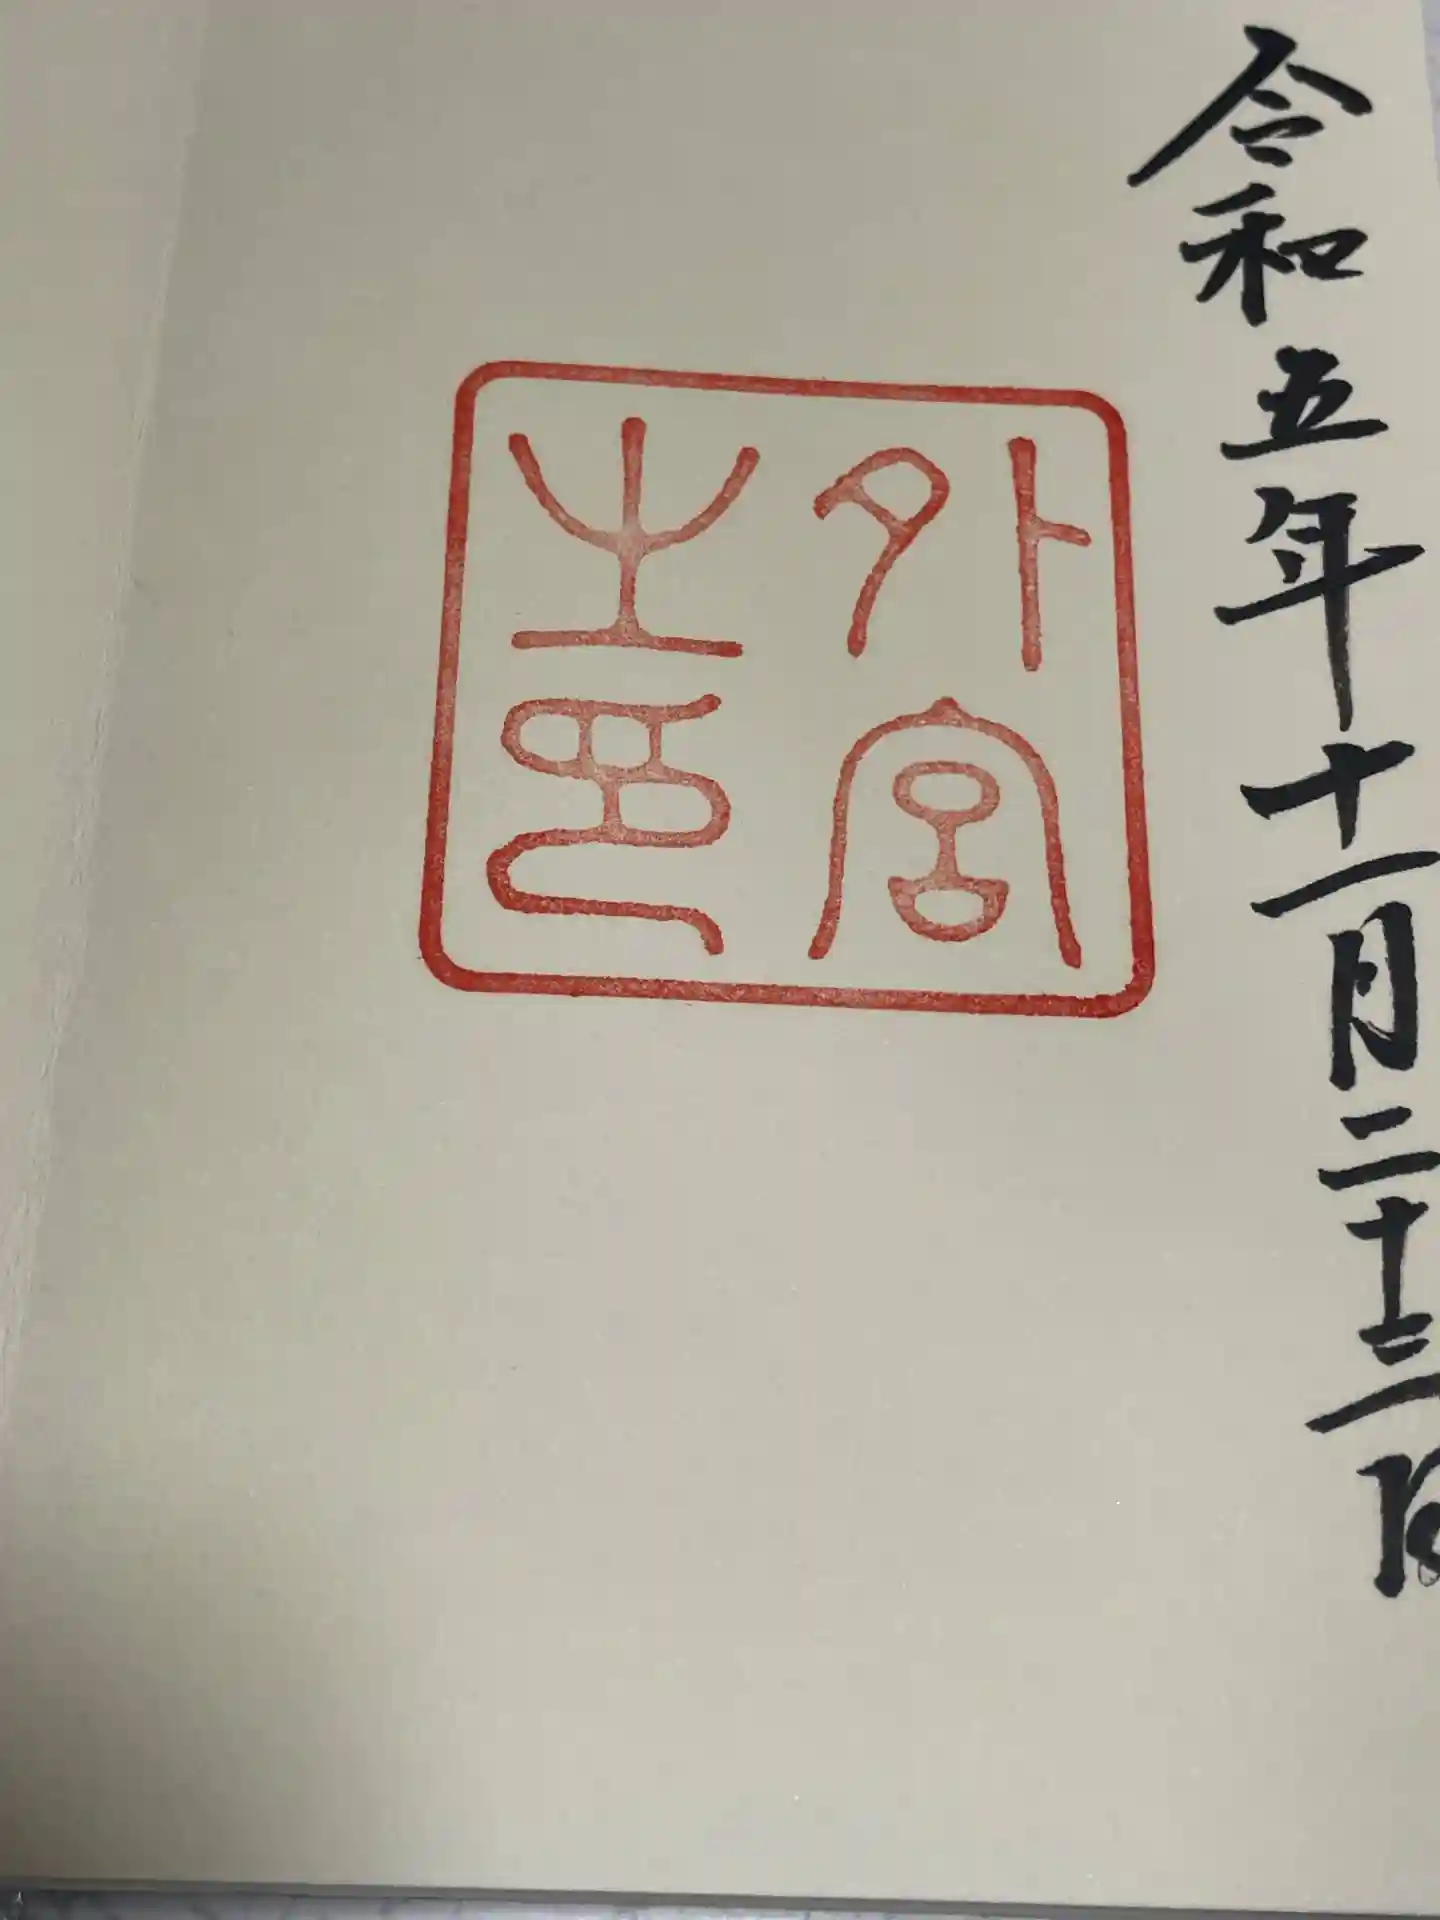 令和五年十一月二十三日
外宮之印